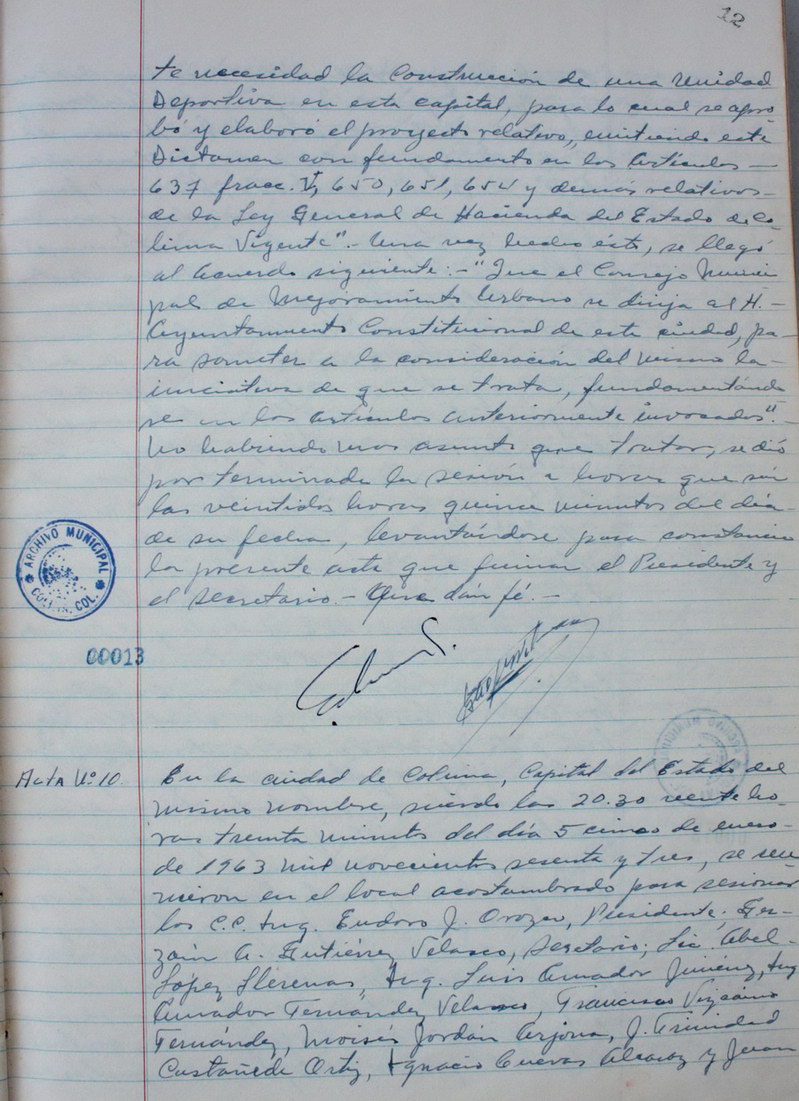 12
te necesidad la Construcción de una Unidad
Deportiva en esta capital, para lo cual se apro
bó y elaboró el proyecto relativo, emitiendo este
Dictamen con fundamento en los Artículos —
637 fracc. V, 650, 651, 654 y demás relativos-
de la Ley General de Hacienda del Estado de Co-
lima Vigente".- Una vez hecho ésto, se llegó
al Acuerdo siguiente:- "Que el Consejo Munici
pal de Mejoramiento Urbano se dirija al H.-
Ayuntamiento Constitucional de esta ciudad, pa-
ra someter a la consideración del mismo la-
iniciativa de que se trata, fundamentándo
se en los artículos anteriormente invocados".-
No habiendo mas asunto que tratar, se dió
por terminada la sesión a horas que son
las veintidos horas quince minutos del día-
de su fecha, levantándose para constancia
la presente acta que firman el Presidente y
el secretario.- Que dán fé.-
ARCHIVO MUNICIPAL
COLIMA, COL.
00013
Acta Nº 10.
En la ciudad de Colima, Capital del Estado del
mismo nombre, siendo las 20.30 veinte ho
ras treinta minutos del día 5 cinco de enero-
de 1963 mil novecientos sesenta y tres, se reu
nieron en el local acostumbrado para sesionar
los C.C. Ing. Eudoro J. Orozco, Presidente;
A. Gutiérrez Velasco, Secretario; Lic. Abel-
López Llerenas, Ing. Luis Amador Jiménez, Ing
Amador Fernández Velasco, Francisco Vizcaino
Fernández, Moisés Jordán Arjona, J. Trinidad
Castañeda Ortiz, Ignacio Cuevas Alcaraz y Juan